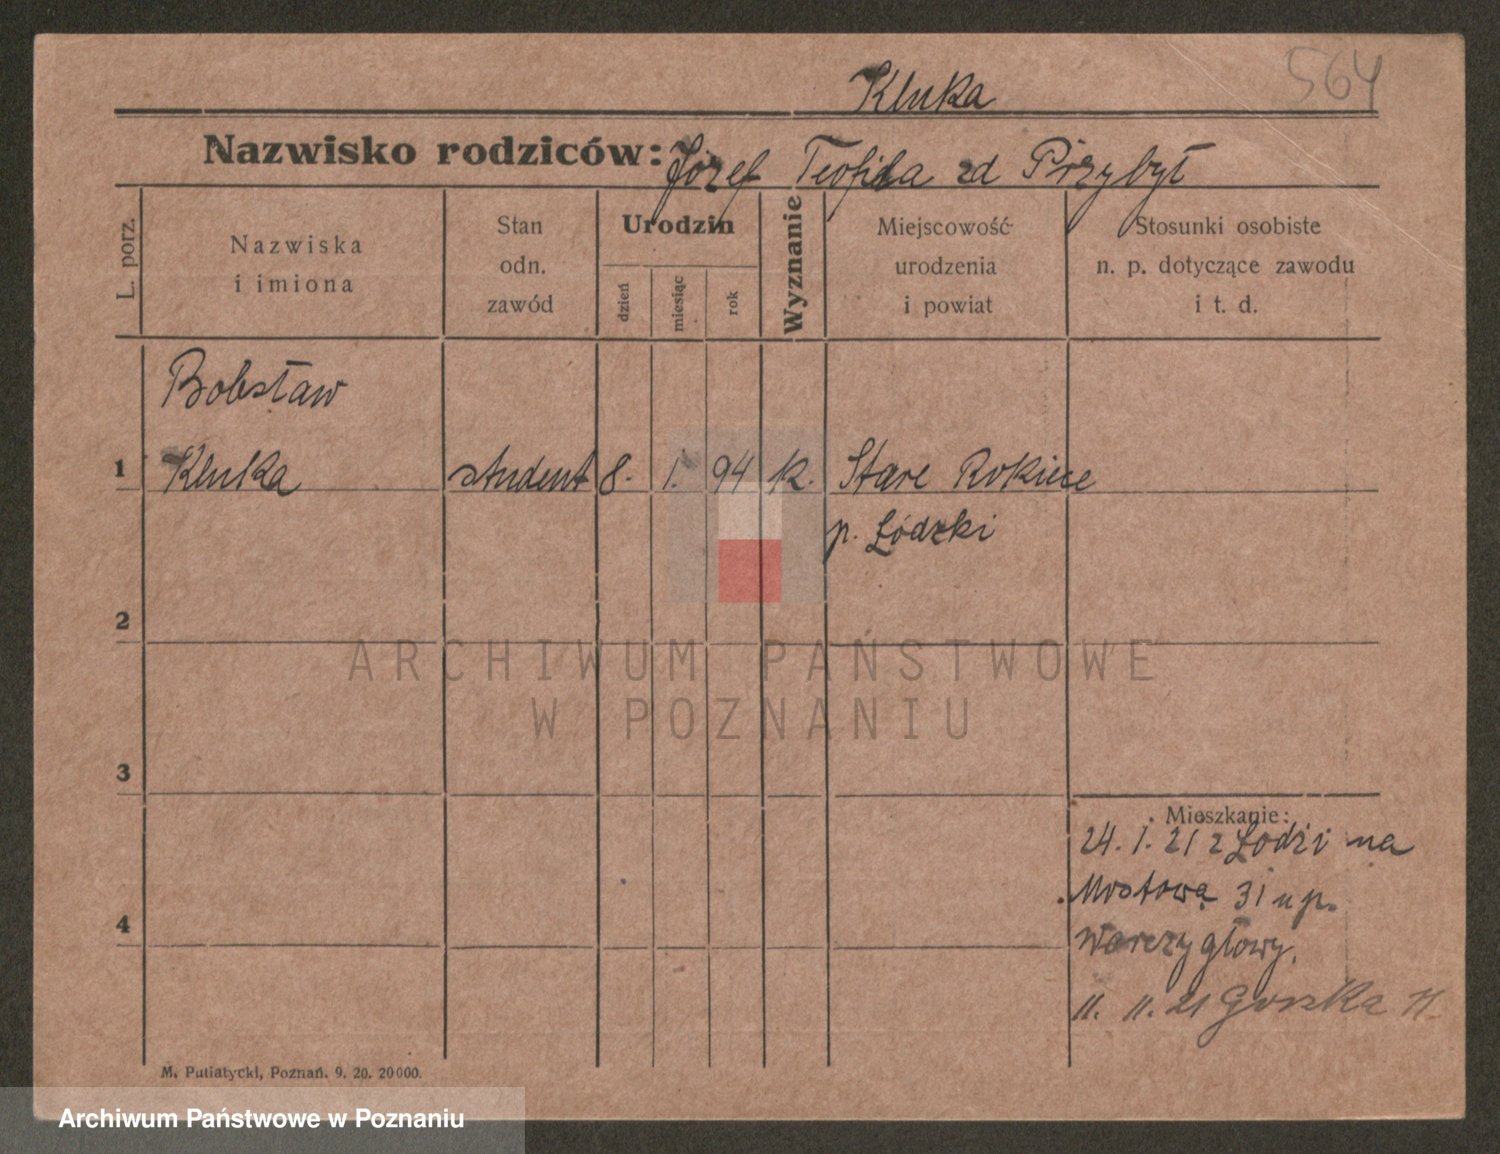 564
Kluka
Nazwisko rodziców: Józef Teofila zd Przybył
L. porz.
Nazwiska
i imiona
Stan
odn.
zawód
Urodzin
dzień
miesiąc
rok
Wyznanie
Miejscowość
urodzenia
i powiat
Stosunki osobiste
n. p. dotyczące zawodu
i t. d.
Bolesław
1 Kluka student 8. 1. 94 k. Stare Rokicie
p. Łódzki
2
3
4
Mieszkanie:
24. 1. 21 z Łodzi na
Mostową 31 u p.
Warczygłowy.
11. 11. 21 11
M. Putiatycki, Poznań. 9. 20. 20000.
ARCHIWUM PAŃSTWOWE
W POZNANIU
Archiwum Państwowe w Poznaniu